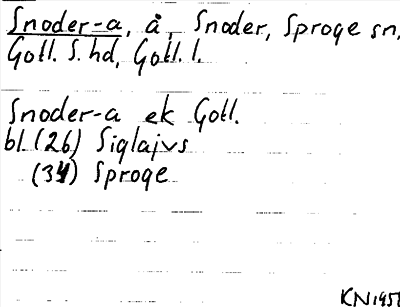 Snoder-a, å, Snoder, Sproge sn,
Gotl. S. hd, Gotl. l.
Snoder-a ek Gotl.
bl. (26) Siglajvs
(34) Sproge
KN 1951